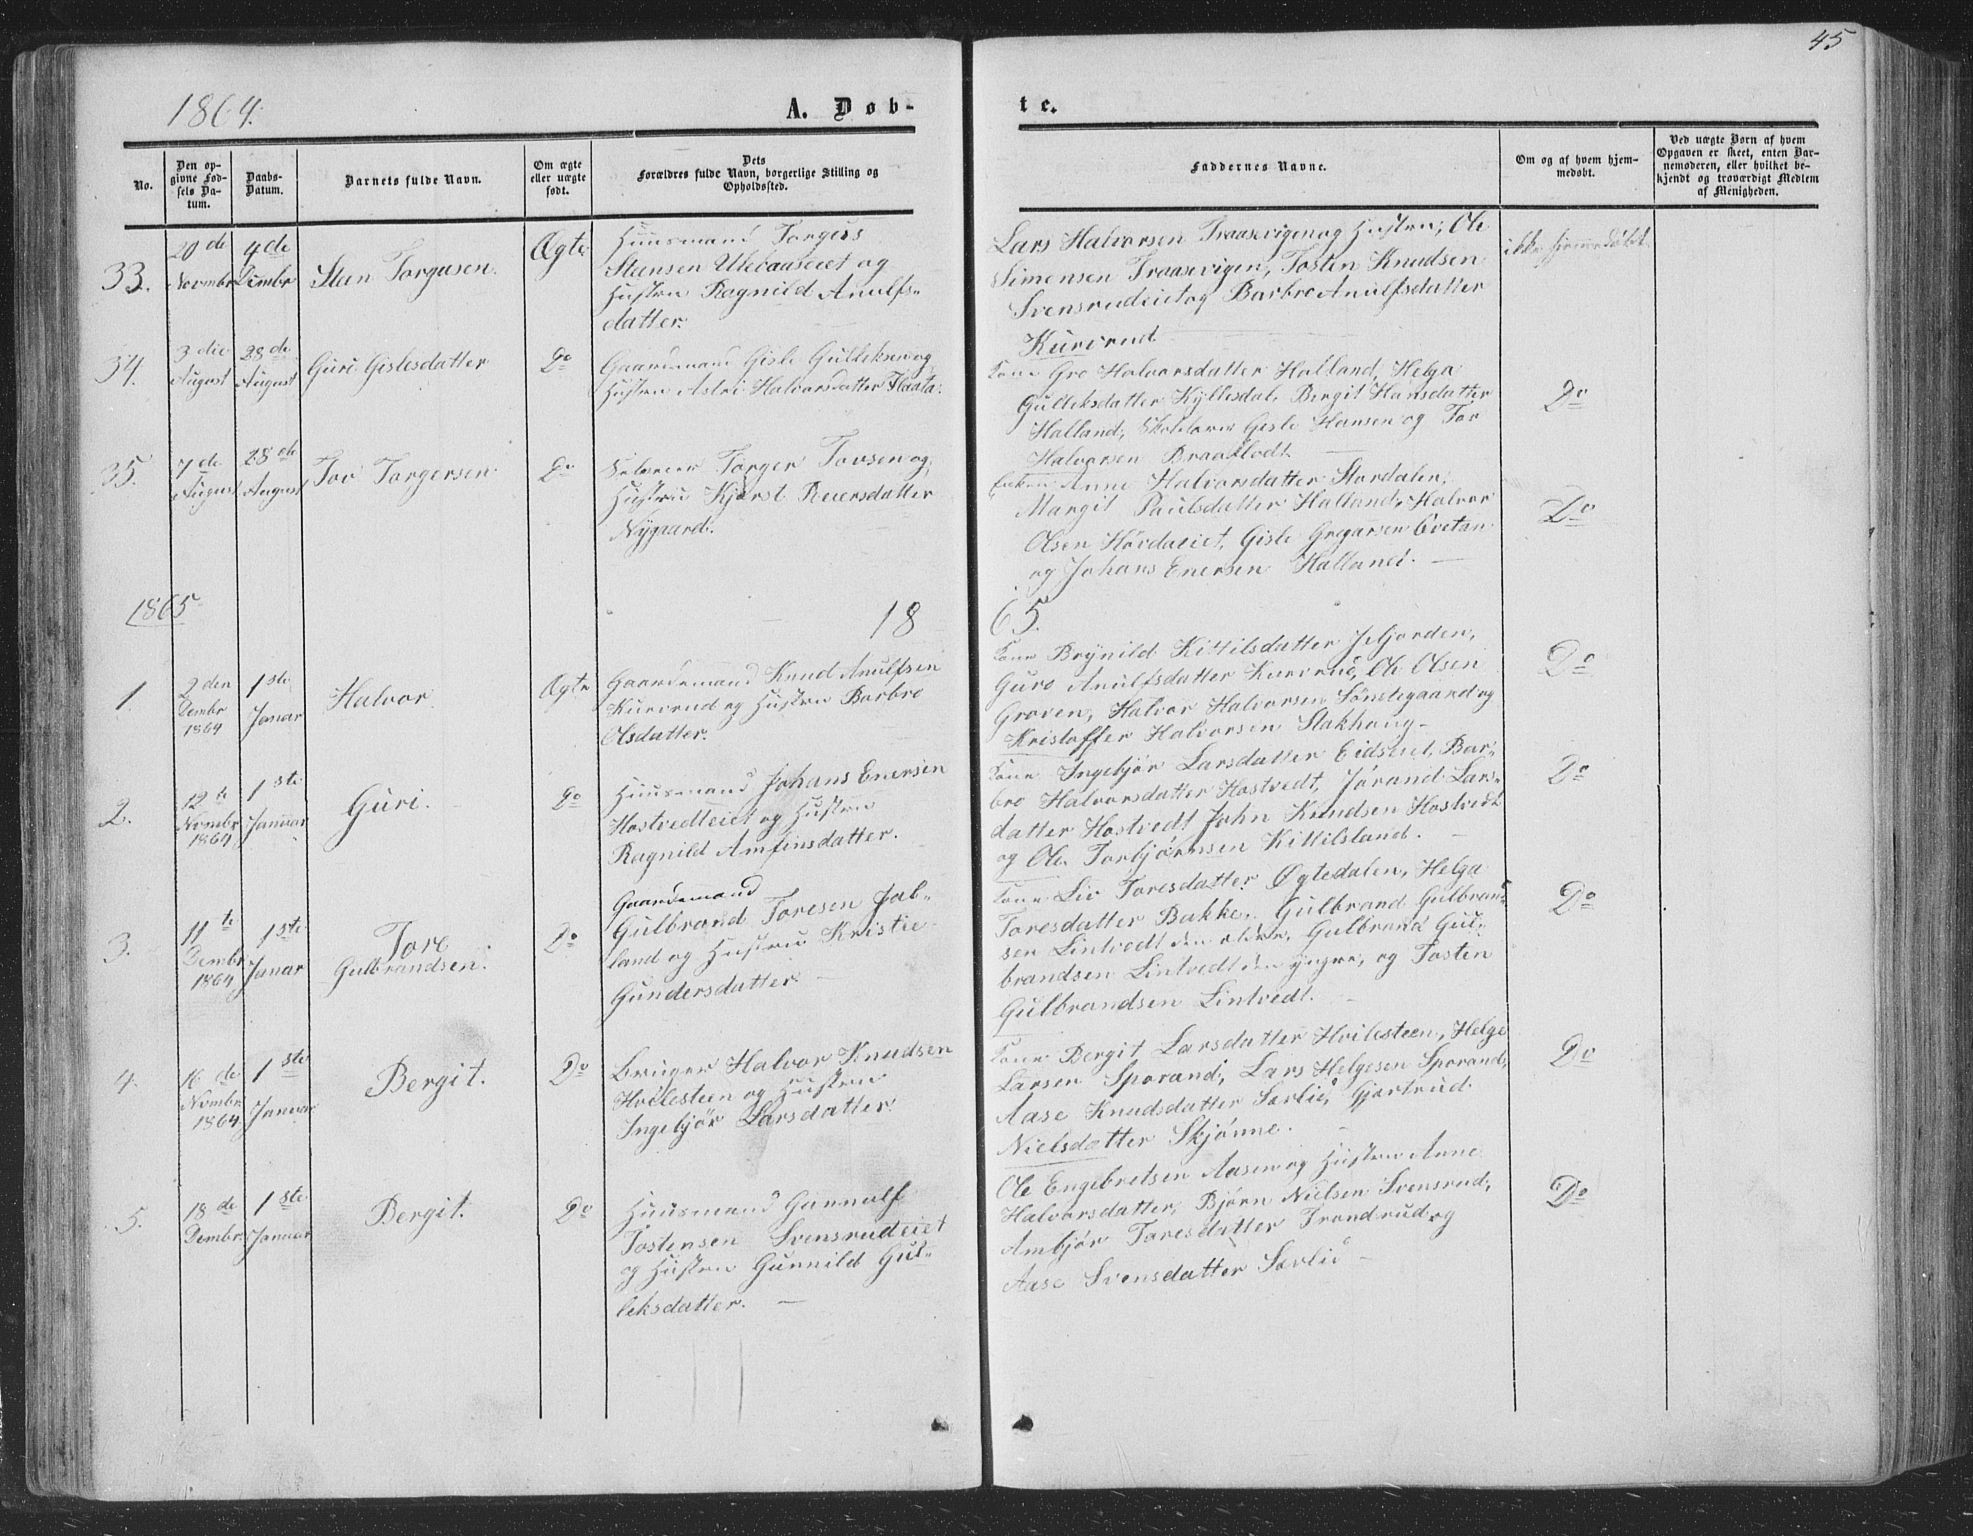 45
1864.
A. Døb-
te.
No.
Den op-
givne Fød-
sels Da-
tum.
Daabs-
Datum.
Barnets fulde Navn.
Om ægte
eller uægte
født.
Dets
Forældres fulde Navn, borgerlige Stilling og
Opholdssted.
Faddernes Navne.
Om og af hvem hjem-
medøbt.
Ved uægte Børn af hvem
Opgaven er skeet, enten Bar-
nemoderen, eller hvilket be-
kjendt og troværdigt Medlem
af Menigheden.
33.
20de
Novmbr
4de
Dcmbr
Sten Torgusen.
Ægte
Huusmand Torgers
Stensen Ulevaaseiet og
Hustru Ragnild Anulfs-
datter.
Lars Halvorsen Traasevigen og Hustru; Ole
Simensen Traasevigen, Tosten Knudsen
Svensrudeiet og Barbro Anulfsdatter
Kurvrud
ikke hjemmedøbt.
34.
3die
August
28de
August
Guri Gislesdatter
Do
Gaardmand Gisle Gulleksen og
Hustru Astri Halvorsdatter Flaata.
Kone Gro Halvorsdatter Halland, Helga
Gulleksdatter Kyllesdal, Bergit Hansdatter
Halland, Skolelærer Gisle Hansen og Tov
Halvorsen Braaflodt.
Do
35.
7de
August
28de
August
Tov Torgersen.
Do
Selveier Torger Tovsen og
Hustru Kjerst Reiersdatter
Nygaard.
Enken Anne Halvorsdatter Stordalen,
Margit Paulsdatter Halland, Halvor
Olsen Hovdaeiet, Gisle Gregarsen Evetan
og Johans Enersen Halland. —
Do
1865
18
65.
1.
2den
Dcmbr
1864
1ste
Janar
Halvor.
Ægte
Gaardmand Knud Anulfsen
Kurvrud og Hustru Barbro
Olsdatter.
Kone Brynild Kittilsdatter Jesjorden,
Guro Anulfsdatter Kurvrud, Ole Olsen
Groven, Halvor Halvorsen Sønstegaard og
Kristoffer Halvorsen Stakhaug —
Do
2.
12te
Novmbr
1864
1ste
Januar
Guri.
Do
Huusmand Johans Enersen
Hostvedteiet og Hustru
Ragnild Amfinsdatter.
Kone Ingebjør Larsdatter Eidseiet, Bar-
bro Halvorsdatter Hostvedt, Jørand Lars-
datter Hostvedt John Knudsen Hostvedt
og Ole Torbjørnssen Kittilsland. —
Do
3.
11te
Dcmbr
1864
1ste
Janar
Tore
Gulbrandsen.
Do
Gaardmand
Gulbrand Toresen Jøb-
land og Hustru Kristie
Gundersdatter. —
Kone Liv Toresdatter Øgtedalen, Helga
Toresdatter Bakke, Gulbrand Gulbrand-
sen Lintvedt den ældre, Gulbrand Gul-
brandsen Lintvedt den yngre, og Tosten
Gulbrandsen Lintvedt. —
Do
4.
16de
Novmbr.
1864
1ste
Januar
Bergit.
Do
Bruger Halvor Knudsen
Hvilesteen og Hustru
Ingebjør Larsdatter.
Kone Bergit Larsdatter Hvilesteen, Helge
Larsen Sporand, Lars Helgesen Sporand,
Aase Knudsdatter Sørlie, Gjertrud
Nielsdatter Skjønne. —
Do
5.
18de
Dcmbr.
1ste
Januar
Bergit.
Do
Huusmand Gunnulf
Tostensen Svensrudeiet
og Hustru Gunnild Gul-
leksdatter. —
Ole Engebretsen Aasen og Hustru Anne
Halvorsdatter, Bjørn Nielsen Svensrud,
Ambjør Toresdatter Trondrud og
Aase Svensdatter Sørlie —
Do